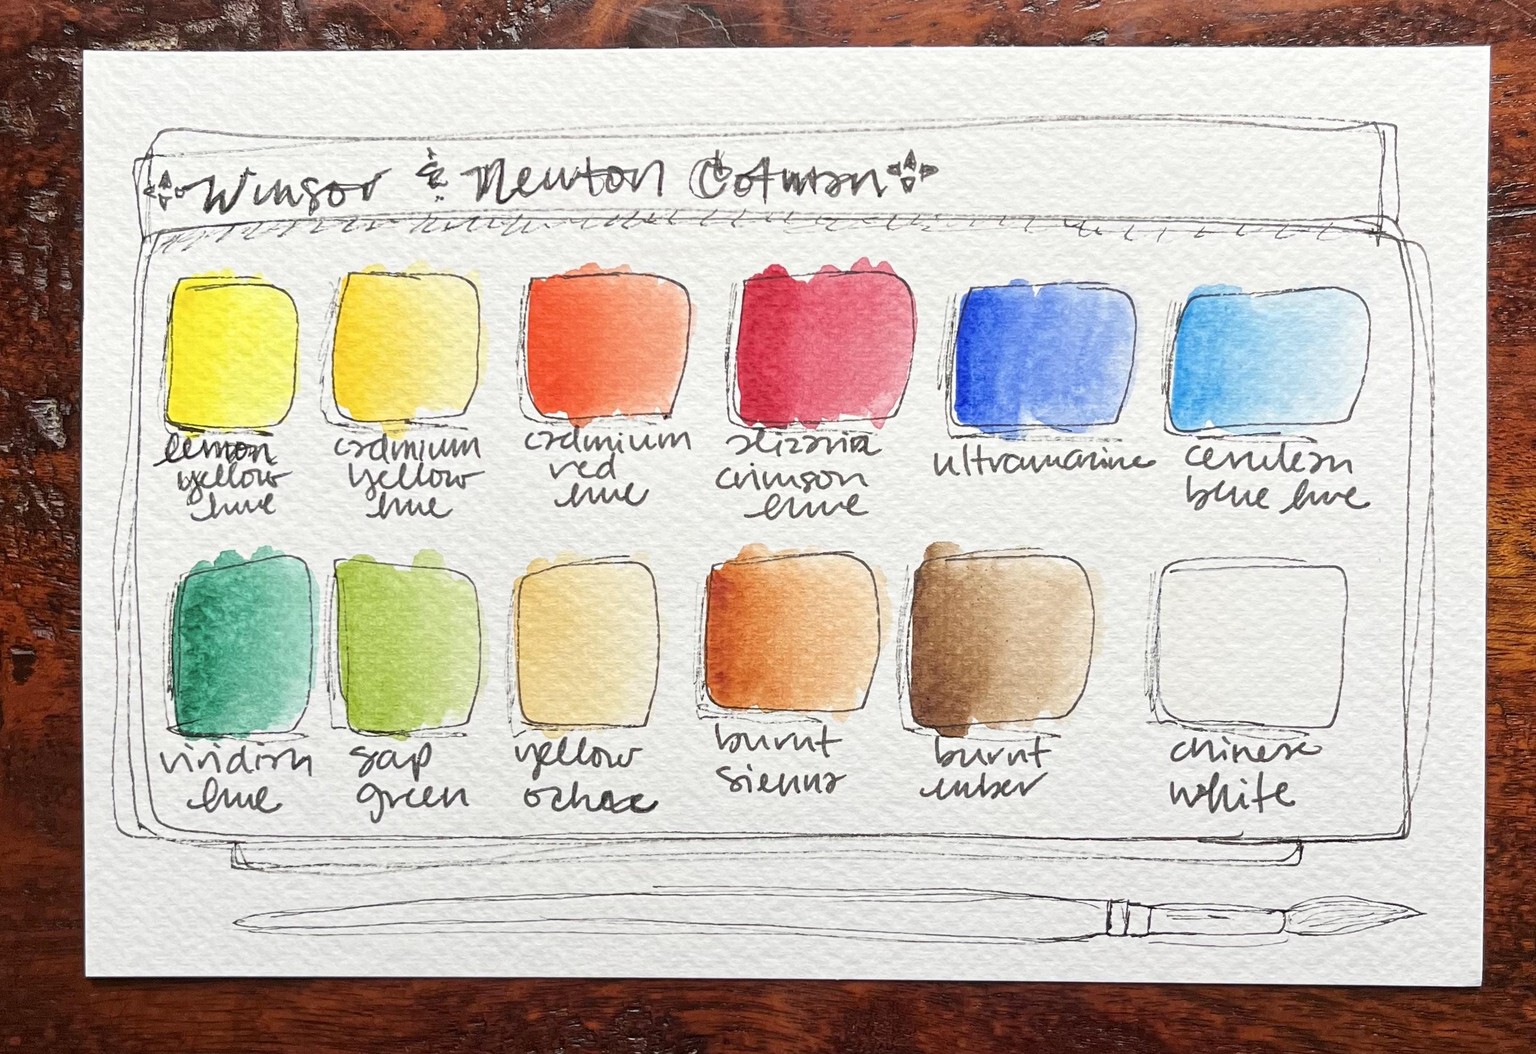 Winsor & Newton Cotman
lemon
yellow
hue
cadmium
yellow
hue
cadmium
red
hue
alizarin
crimson
hue
ultramarine
cerulean
blue hue
viridian
hue
sap
green
yellow
ochre
burnt
sienna
burnt
umber
chinese
white